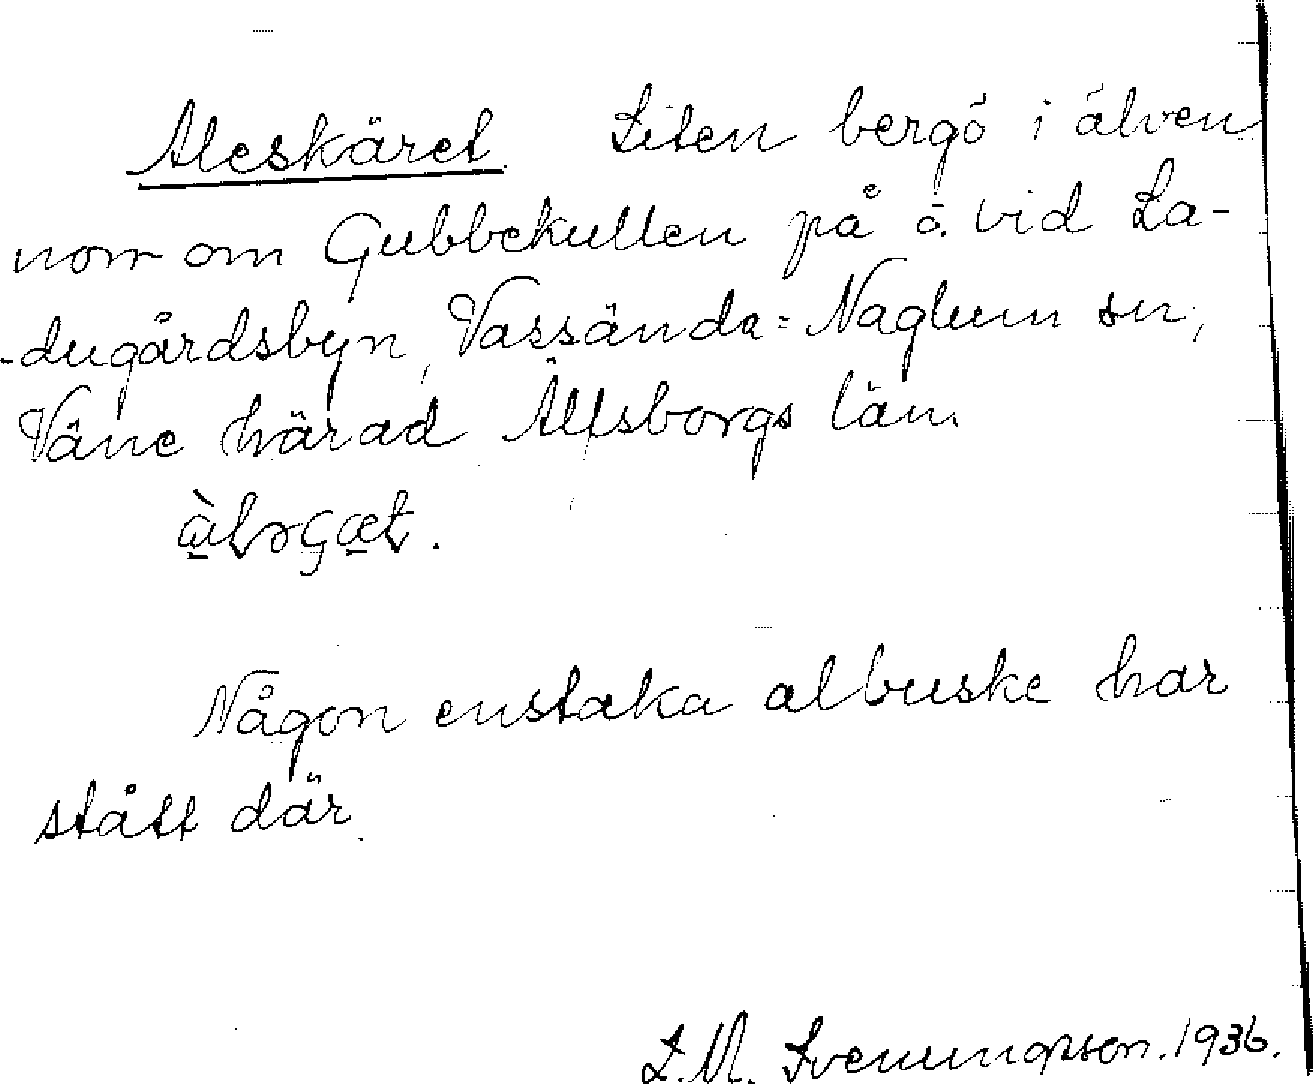 Aleskäret. Liten bergö i älven
norr om Gubbekullen på ö. vid La-
-dugårdsbyn, Vassända=Naglum sn,
Väne härad Älfsborgs län.
Någon enstaka albuske har
stått där.
L.M. Svenungsson. 1936.